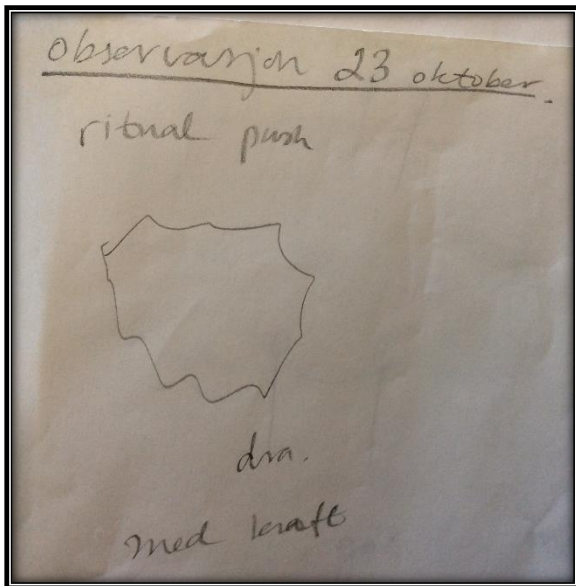 observasjon 23 oktober.
ritual push
dra.
med kraft